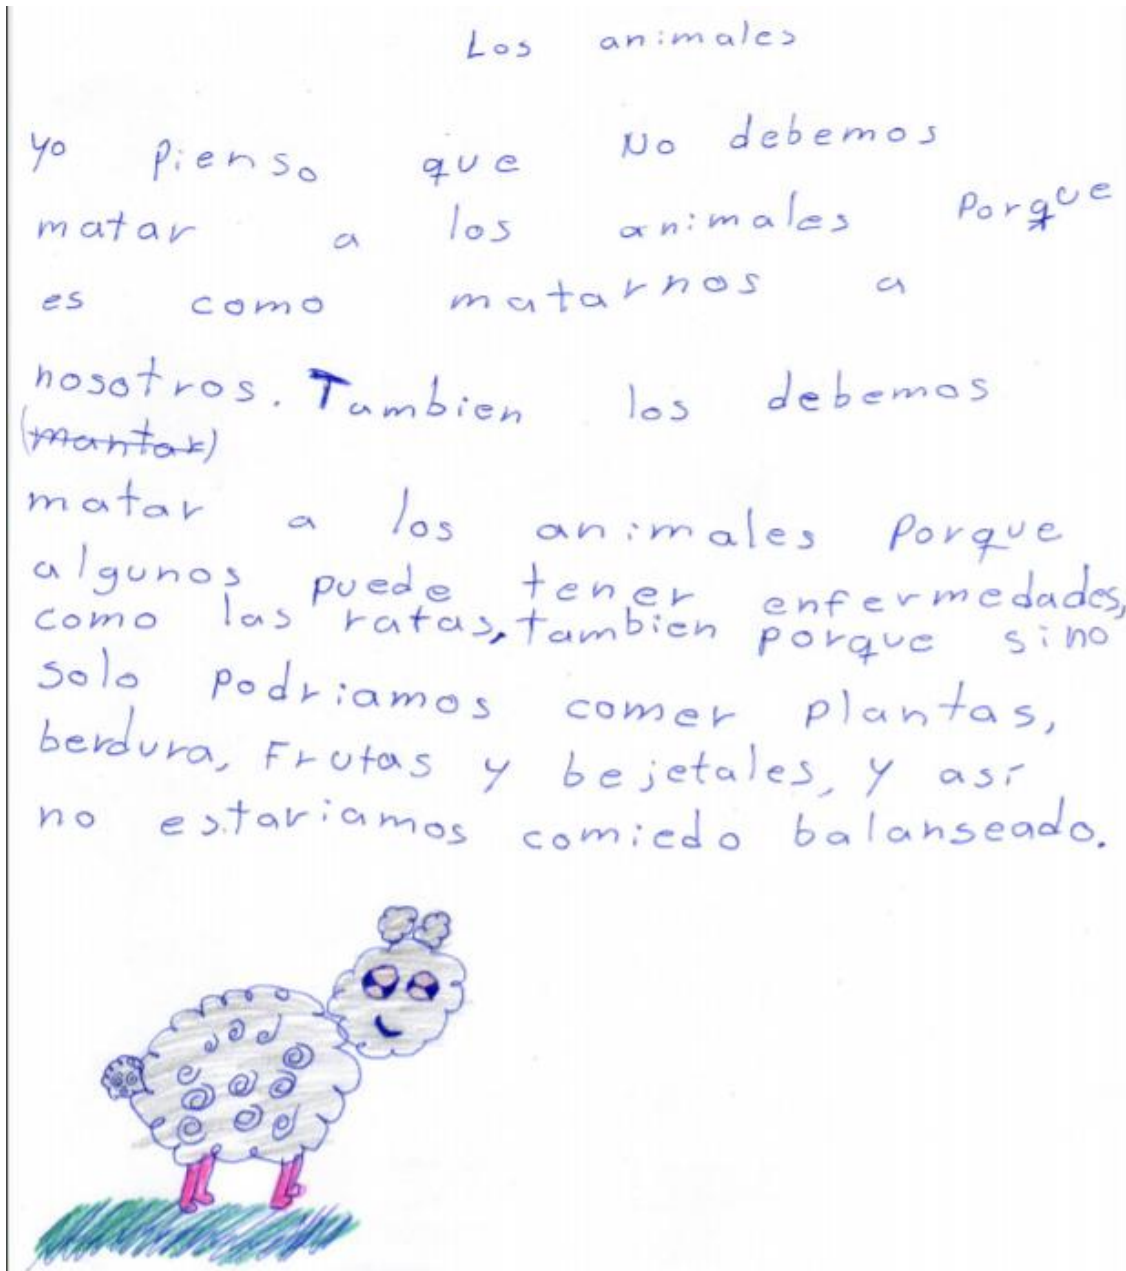 Los animales
yo pienso que No debemos
matar a los animales Porque
es como matarnos a
nosotros. Tambien los debemos
(mantar)
matar a los animales Porque
algunos puede tener enfermedades,
como las ratas, tambien porque sino
solo podriamos comer plantas,
berdura, Frutas y bejetales, y así
no estariamos comiedo balanseado.